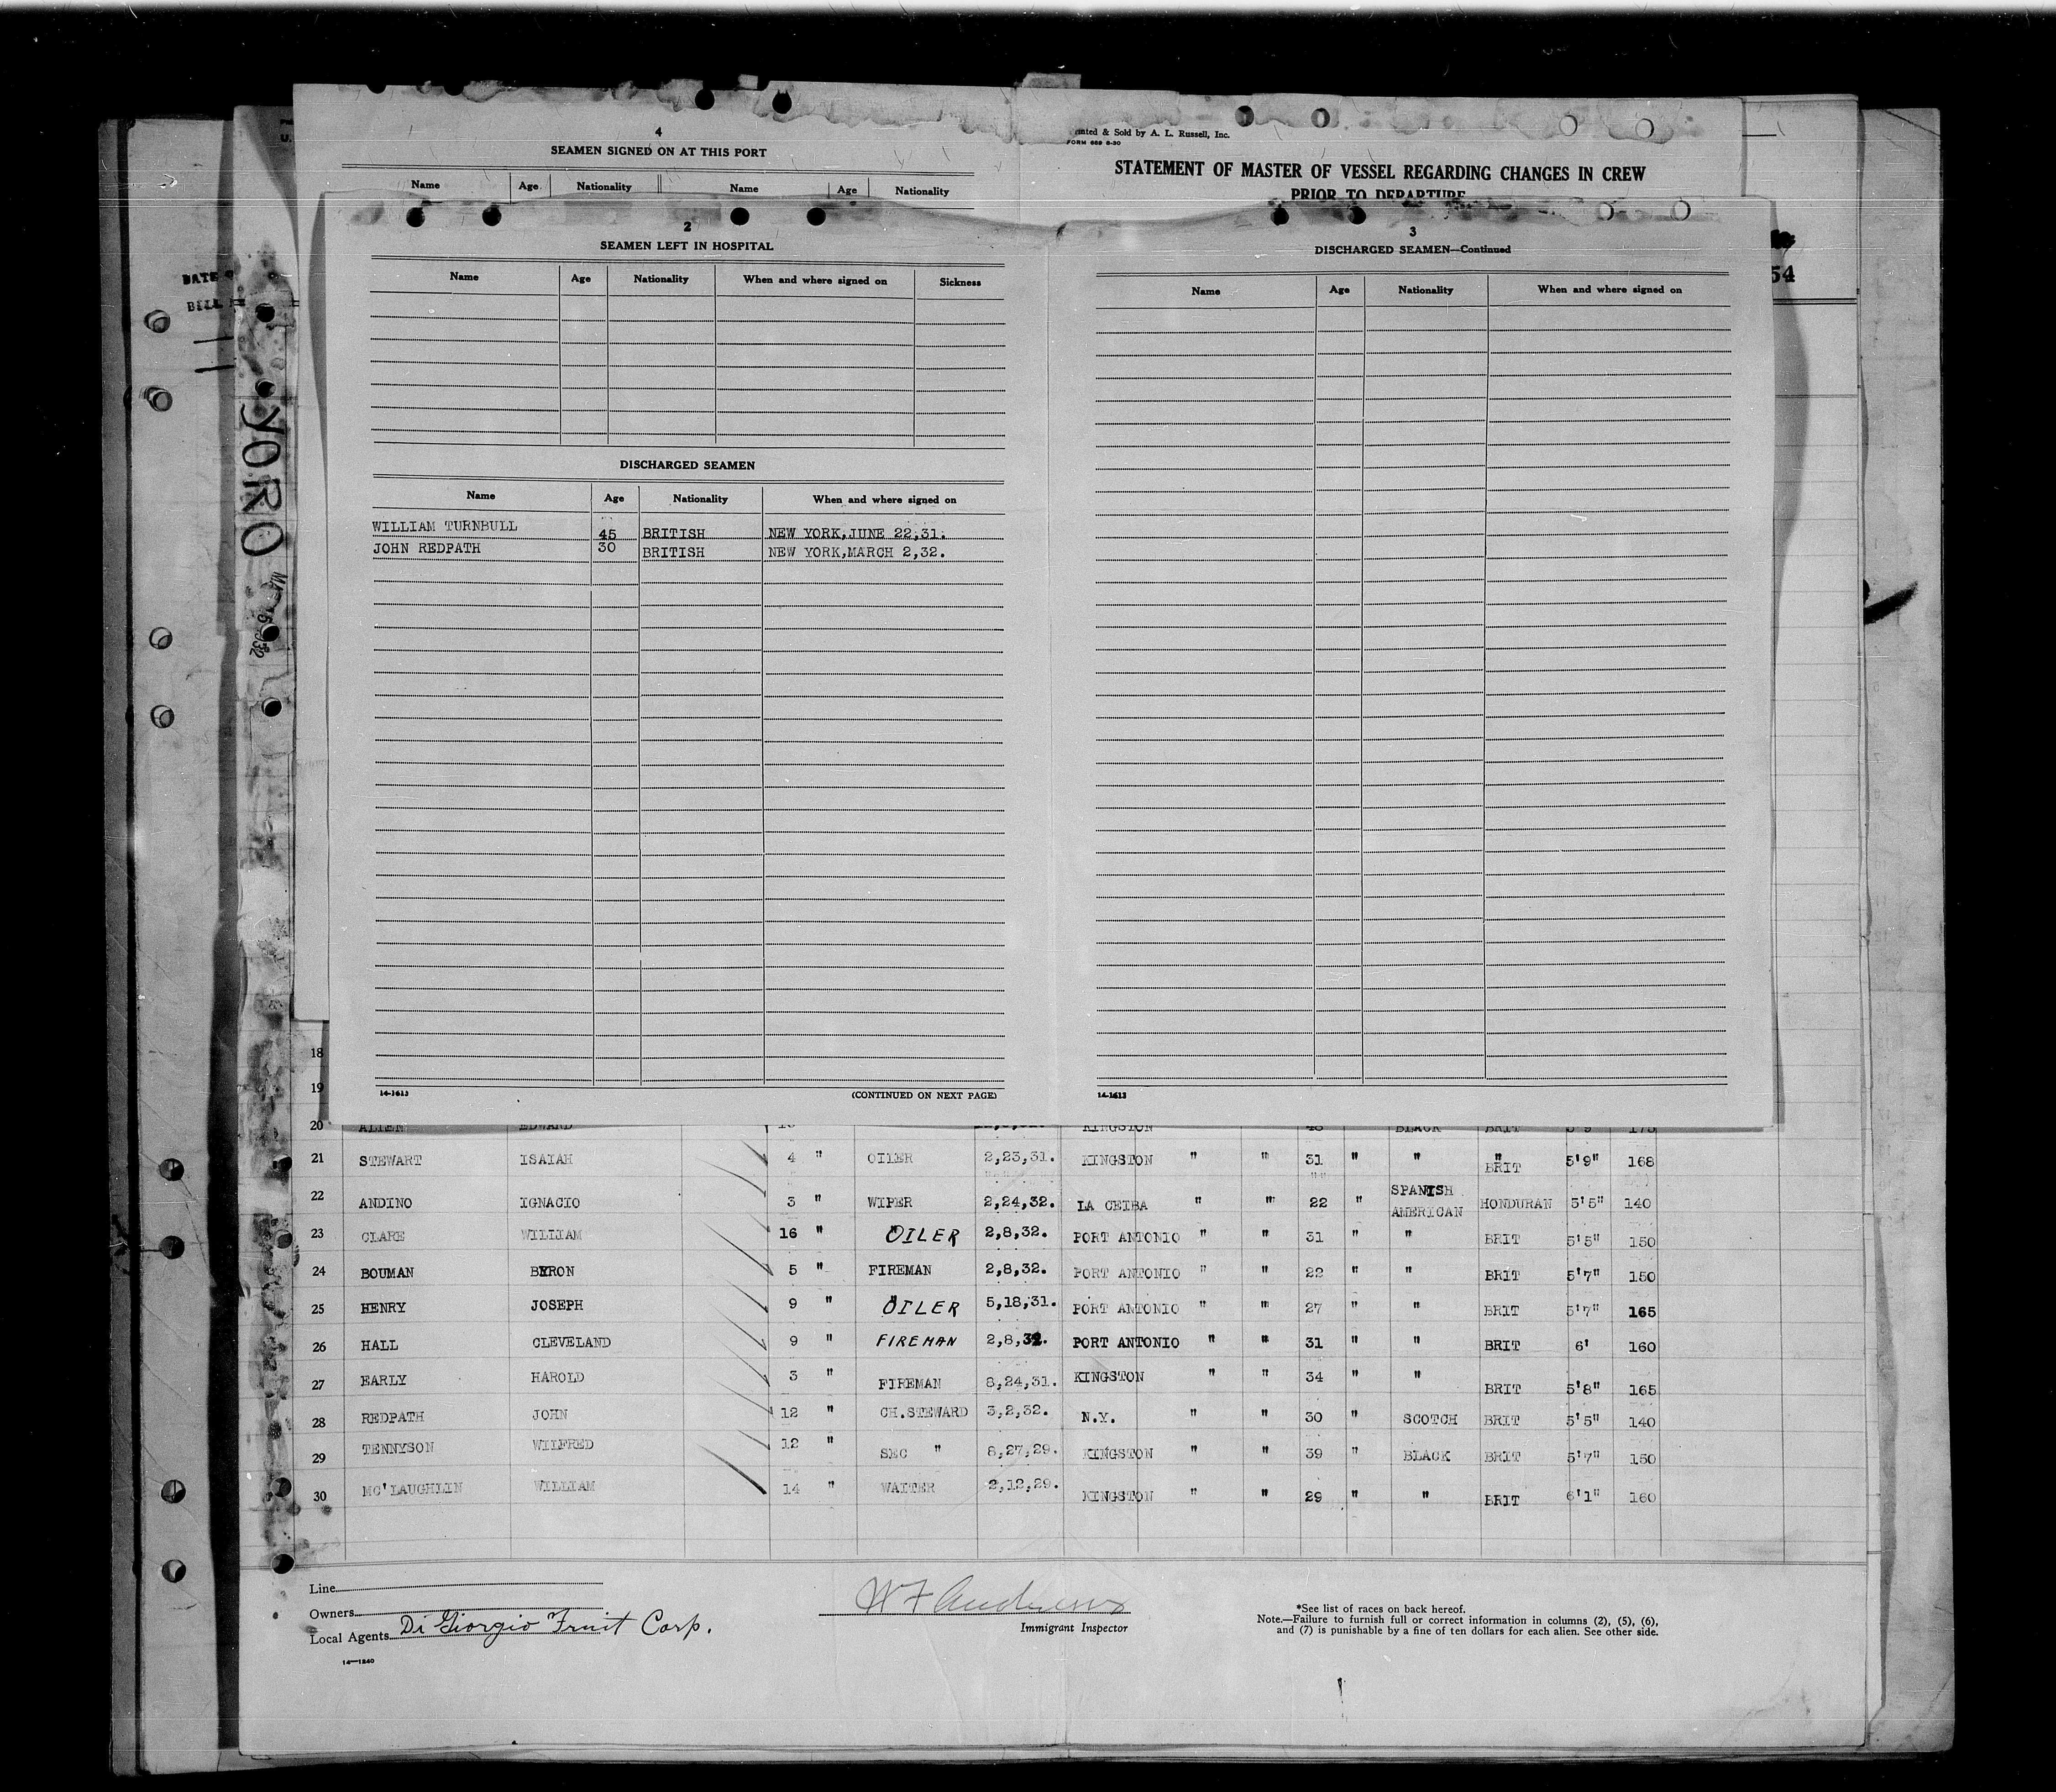 4
SEAMEN SIGNED ON AT THIS PORT
Name Age Nationality Name Age Nationality
& Sold by A. L. Russell, Inc.
FORM 689 8-30
STATEMENT OF MASTER OF VESSEL REGARDING CHANGES IN CREW
PRIOR TO DEPARTURE
54
DATE
BILL
YORO
2
SEAMEN LEFT IN HOSPITAL
Name Age Nationality When and where signed on Sickness
DISCHARGED SEAMEN
Name Age Nationality When and where signed on
WILLIAM TURNBULL 45 BRITISH NEW YORK,JUNE 22,31.
JOHN REDPATH 30 BRITISH NEW YORK,MARCH 2,32.
14-1613 (CONTINUED ON NEXT PAGE)
3
DISCHARGED SEAMEN—Continued
Name Age Nationality When and where signed on
14-1613
18
19
20 ALLEN EDWARD KINGSTON BLACK BRIT 5'9 175
21 STEWART ISAIAH 4 " OILER 2,23,31. KINGSTON " " 31 " " " BRIT 5'9" 168
22 ANDINO IGNACIO 3 " WIPER 2,24,32. LA CEIBA " " 22 " SPANISH AMERICAN HONDURAN 5'5" 140
23 CLARE WILLIAM 16 " OILER 2,8,32. PORT ANTONIO " " 31 " " BRIT 5'5" 150
24 BOUMAN BYRON 5 " FIREMAN 2,8,32. PORT ANTONIO " " 22 " " BRIT 5'7" 150
25 HENRY JOSEPH 9 " OILER 5,18,31. PORT ANTONIO " " 27 " " BRIT 5'7" 165
26 HALL CLEVELAND 9 " FIREMAN 2,8,32. PORT ANTONIO " " 31 " " BRIT 6' 160
27 EARLY HAROLD 3 " FIREMAN 8,24,31. KINGSTON " " 34 " " BRIT 5'8" 165
28 REDPATH JOHN 12 " CH.STEWARD 3,2,32. N.Y. " " 30 " SCOTCH BRIT 5'5" 140
29 TENNYSON WILFRED 12 " SEC " 8,27,29. KINGSTON " " 39 " BLACK BRIT 5'7" 150
30 MC'LAUGHLIN WILLIAM 14 " WAITER 2,12,29. KINGSTON " " 29 " " BRIT 6'1" 160
Line
Owners
Local Agents Di Giorgio Fruit Corp.
14—1240
W F Anderson
Immigrant Inspector
*See list of races on back hereof.
Note.—Failure to furnish full or correct information in columns (2), (5), (6),
and (7) is punishable by a fine of ten dollars for each alien. See other side.